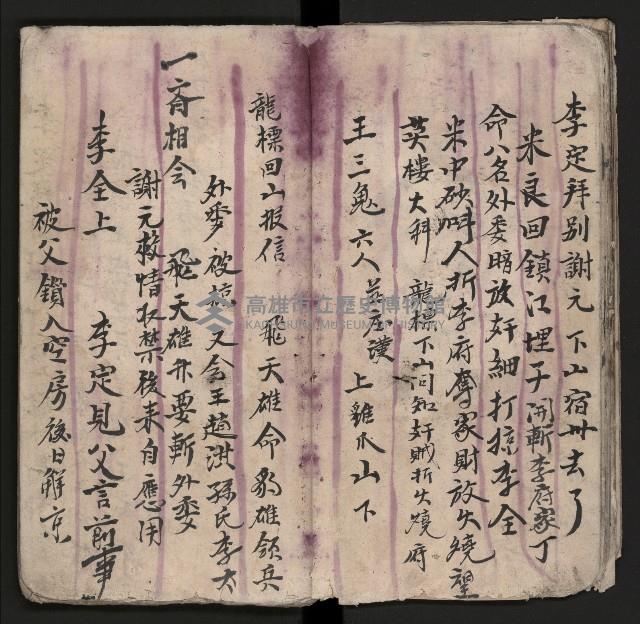 李定拜别謝元 下山宿州去了
米良回鎮江埋子 開斬李府家丁
命八名外委暗放奸細打掠李全
米中砂叫人折李府奪家財放火燒望
英樓大科 龍標下山问知奸賊折火燒府
王三鬼六人 上雞爪山下
龍標回山报信 飛天雄命豹雄領兵
外委破掠 又会王趙洪孫氏李大
一齊相会 飛天雄开要斬外委
謝元救情收禁後来自應用
李全上 李定見父言前事
被父鎖入空房後日解京
高雄市立歷史博物館
KAOHSIUNG MUSEUM OF HISTORY